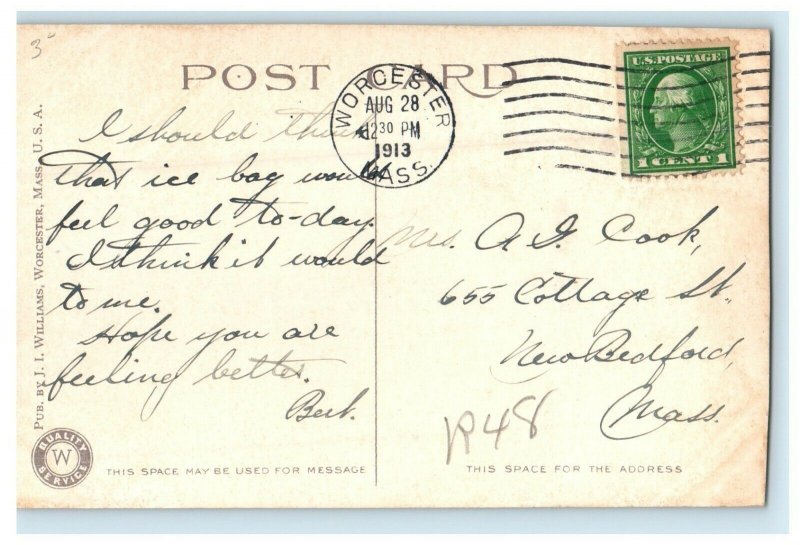 3
POST CARD
WORCESTER
AUG 28
12 30 PM
1913
MASS.
U.S. POSTAGE
1 CENT 1
I should think
that ice bag would
feel good to-day.
I think it would
to me.
Hope you are
feeling better.
Bert.
Mrs. A. G. Cook,
655 Cottage St.,
New Bedford,
Mass.
R48
PUB. BY J. I. WILLIAMS, WORCESTER, MASS., U. S. A.
QUALITY
W
SERVICE
THIS SPACE MAY BE USED FOR MESSAGE
THIS SPACE FOR THE ADDRESS